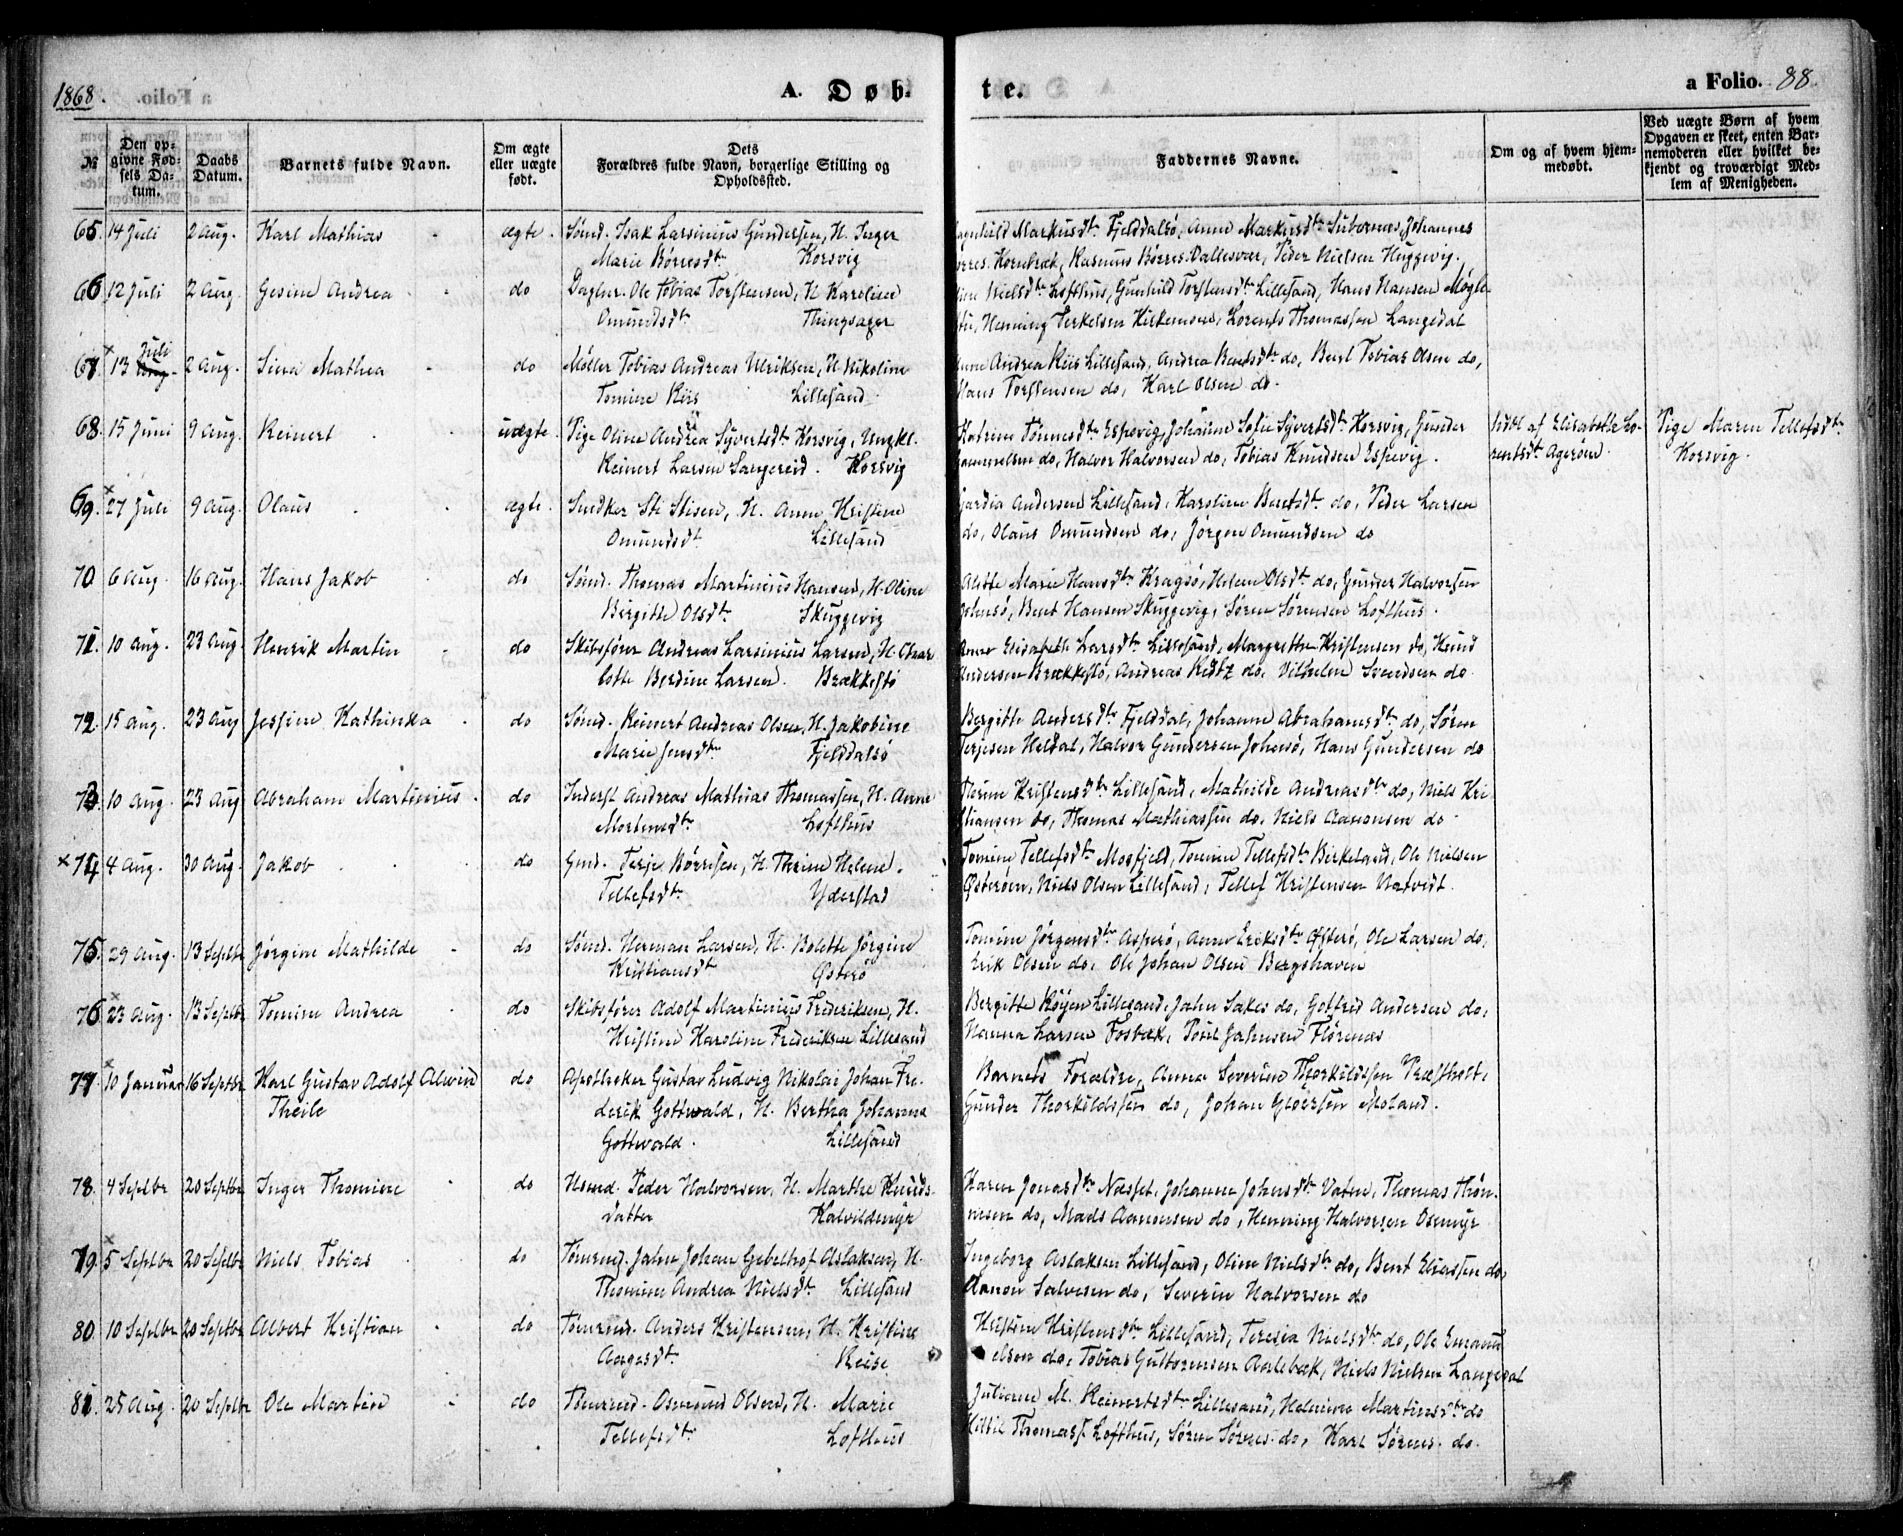 1868.
A. Døb-
te.
a Folio. 88.
№
Den op-
givne Fød-
sels Da-
tum.
Daabs
Datum.
Barnets fulde Navn.
Om ægte
eller uægte
født.
Dets
Forældres fulde Navn, borgerlige Stilling og
Opholdssted.
Faddernes Navne.
Om og af hvem hjem-
medøbt.
Ved uægte Børn af hvem
Opgaven er skeet, enten Bar-
nemoderen eller hvilket be-
kjendt og troværdigt Med-
lem af Menigheden.
65. 14 Juli 2 Aug. Karl Mathias ægte. Sømd. Isak Larsinius Gundersen, H. Inger
Marie Børresdtr Korsvig
Markusdtr Fjelddalsø, Anne Markusdtr Johannes
Kornbræk, Rasmus Børres. Dallesvær, Peder Nielsen
66 12 Juli 2 Aug. Gesine Andrea do Daglnr. Ole Tobias Torstensen, H Karoline
Omundsdtr Thingsager
Nielsdtr Lofthus, Gunhild Torstensdtr Lillesand, Hans Hansen Møgle-
stu, Henning Terkelsen Lorents Thomassen Langedal
67. 13 Juli 2 Aug. Sina Mathea do Møller Tobias Andreas Ulriksen, H Nikoline
Tomine Riis Lillesand.
Andrea Riis Lillesand, Andrea Bentsdtr do, Bent Tobias Olsen do,
Hans Torstensen do, Karl Olsen do.
68. 15 Juni 9 Aug. Reinert uægte. Pige Oline Andrea Syvertsdtr Korsvig, Ungkl.
Reinert Larsen Langereid. Korsvig
Katrine Tønnesdtr Espevig, Johanne Sofie Syvertsdtr Korsvig, Gunder
Gunnerelsen do, Halvor Halvorsen do, Tobias Knudsen Espevig.
hdbt af Elisabeth Lo-
rentsdtr Agerøen.
Pige Maren Tellefsdtr
Korsvig.
69. 27 Juli 9 Aug. Olaus ægte. Snedker Sti Stisen, H. Anne Kristine
Omundsdtr Lillesand
Andersen Lillesand, Karoline Bentsdtr do, Peder Larsen
do, Olaus Omundsen do, Jørgen Omundsen do
70 6 Aug. 16 Aug. Hans Jakob do Sømd. Thomas Martinius Hansen, H. Oline
Bergitte Olsdtr Skuggevig
Alette Marie Hansdtr Kragsø, Helene Olsdtr do, Gunder Halvorsen
Johnsø, Bent Hansen Skuggevig, Søren Sørensen Lofthus.
71. 10 Aug. 23 Aug. Henrik Martin do Skibsfører Andreas Larsinius Larsen, H. Char
lotte Berdine Larsen. Brækkestø
Anne Elisabeth Larsdtr Lillesand, Margrethe Kristensen do, Knud
Andersen Brækkestø, Andreas Reitz do, Vilhelm Svendsen do
72. 15 Aug. 23 Aug Jessine Kathinka do Sømd. Reinert Andreas Olsen, H. Jakobine
Marie Jensdtr Fjelddalsø
Bergitte Andersdtr Fjelddal, Johanne Abrahamsdtr do, Søren
Terjesen Heldal, Halvor Gundersen Johnsø, Hans Gundersen do
73. 10 Aug. 23 Aug Abraham Martinius. do Inderst Andreas Mathias Thomassen, H. Anne
Mortensdtr Lofthus
Terine Kristensdtr Lillesand, Mathilde Andreasdtr do, Niels Kri-
stiansen do, Thomas Mathiassen do, Niels Aanonsen do.
74. 4 Aug. 30 Aug. Jakob do Gmd. Terje Børresen, H. Therine Helene.
Tellefsdtr. Yderstad
Tomine Tellefsdtr Mosfjeld, Tomine Tellefsdtr Birkeland, Ole Nielsen
Østerøen, Niels Olsen Lillesand, Tellef Kristensen Natvedt.
75. 29 Aug. 13 Septbr Jørgine Mathilde do Sømd. Herman Larsen, H. Bolette Jørgine
Kristiansdtr Østerø
Tomine Jørgensdtr Asperø, Anne Eriksdtr Østerø, Ole Larsen do,
Erik Olsen do, Ole Johan Olsen Bergshaven
76 23 Aug. 13 Septbr Tomine Andrea do Skibsfører Adolf Martinius Frederiksen, H.
Kristine Karoline Frederiksen Lillesand
Bergitte Røyen Lillesand, Jahn Sakes do, Gotfred Andersen do,
Hanna Larsen Fosbæk, Poul Jahnsen Flørenæs
77. 10 Januar 16 Septbr Karl Gustav Adolf Alwin
Theile do Apotheker Gustav Ludvig Nikolai Johan Fre-
derik Gottwald, H. Bertha Johanna
Gottwald. Lillesand
Barnets Forældre, Anna Severine Thorkildsen Præstholt,
Gunder Thorkildsen do, Johan Gloersen Moland.
78. 4 Septbr 20 Septbr Inger Thomine do Husmd. Peder Halvorsen, H. Marthe Knuds-
datter Kalvildmyr
Karen Jonasdtr Næsset, Johanne Johnsdtr Vatne, Thomas Thøn-
nesen do, Mads Aanonsen do, Henning Halvorsen Osemyr
79. 5 Septbr 20 Septbr Niels Tobias do Tømrmd. Jahn Johan Gebelhof Aslaksen, H.
Thomine Andrea Nielsdtr Lillesand
Ingeborg Aslaksen Lillesand, Oline Nielsdtr do, Bent Eliassen do,
Aanon Salvesen do, Severin Halvorsen do
80. 10 Septbr 20 Septbr Albert Kristian do Tømrmd. Anders Kristensen, H. Kristine
Aagesdtr. Reise
Kristine Kristensdtr Lillesand, Teresia Nielsdtr do, Ole Emanu
elsen do, Tobias Guttormsen Aalebæk, Niels Nielsen Langedal
81. 25 Aug. 20 Septbr Ole Martin do Tømrmd. Osmund Olsen, H. Marie
Tellefsdtr Lofthus
Juliane M. Reinertsdtr Lillesand, Helmine Martinsdtr do
Kittil Thomass. Lofthus, Søren Sørens. do, Karl Sørens. do.